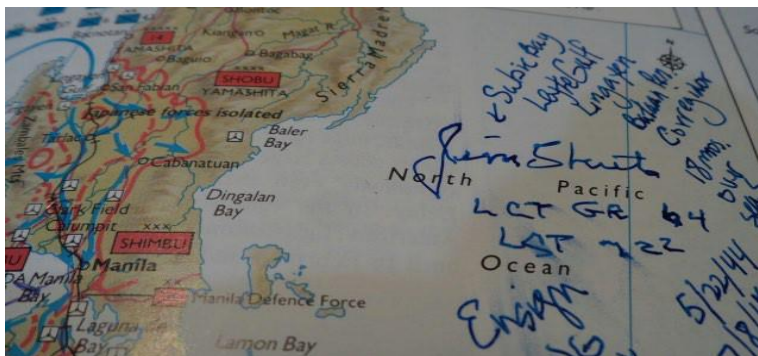 Bacnotan
14
YAMASHITA
Kiangan
Magat R.
Baguio
Bagabag
XXXX
SHOBU
YAMASHITA
Sierra Madre
San Fabian
Japanese forces isolated
Baler
Bay
Tarlac
Cabanatuan
Zambales Mts
Dingalan
Bay
Clark Field
Calumpit
XXX
SHIMBU
Manila
Manila
Bay
XX
Manila Defence Force
Laguna de
Bay
Lamon Bay
North
Pacific
Ocean
Subic Bay
Leyte Gulf
Lingayen
Corregidor
18 mos.
Jim
LCT GR
Ensign
5/22/44